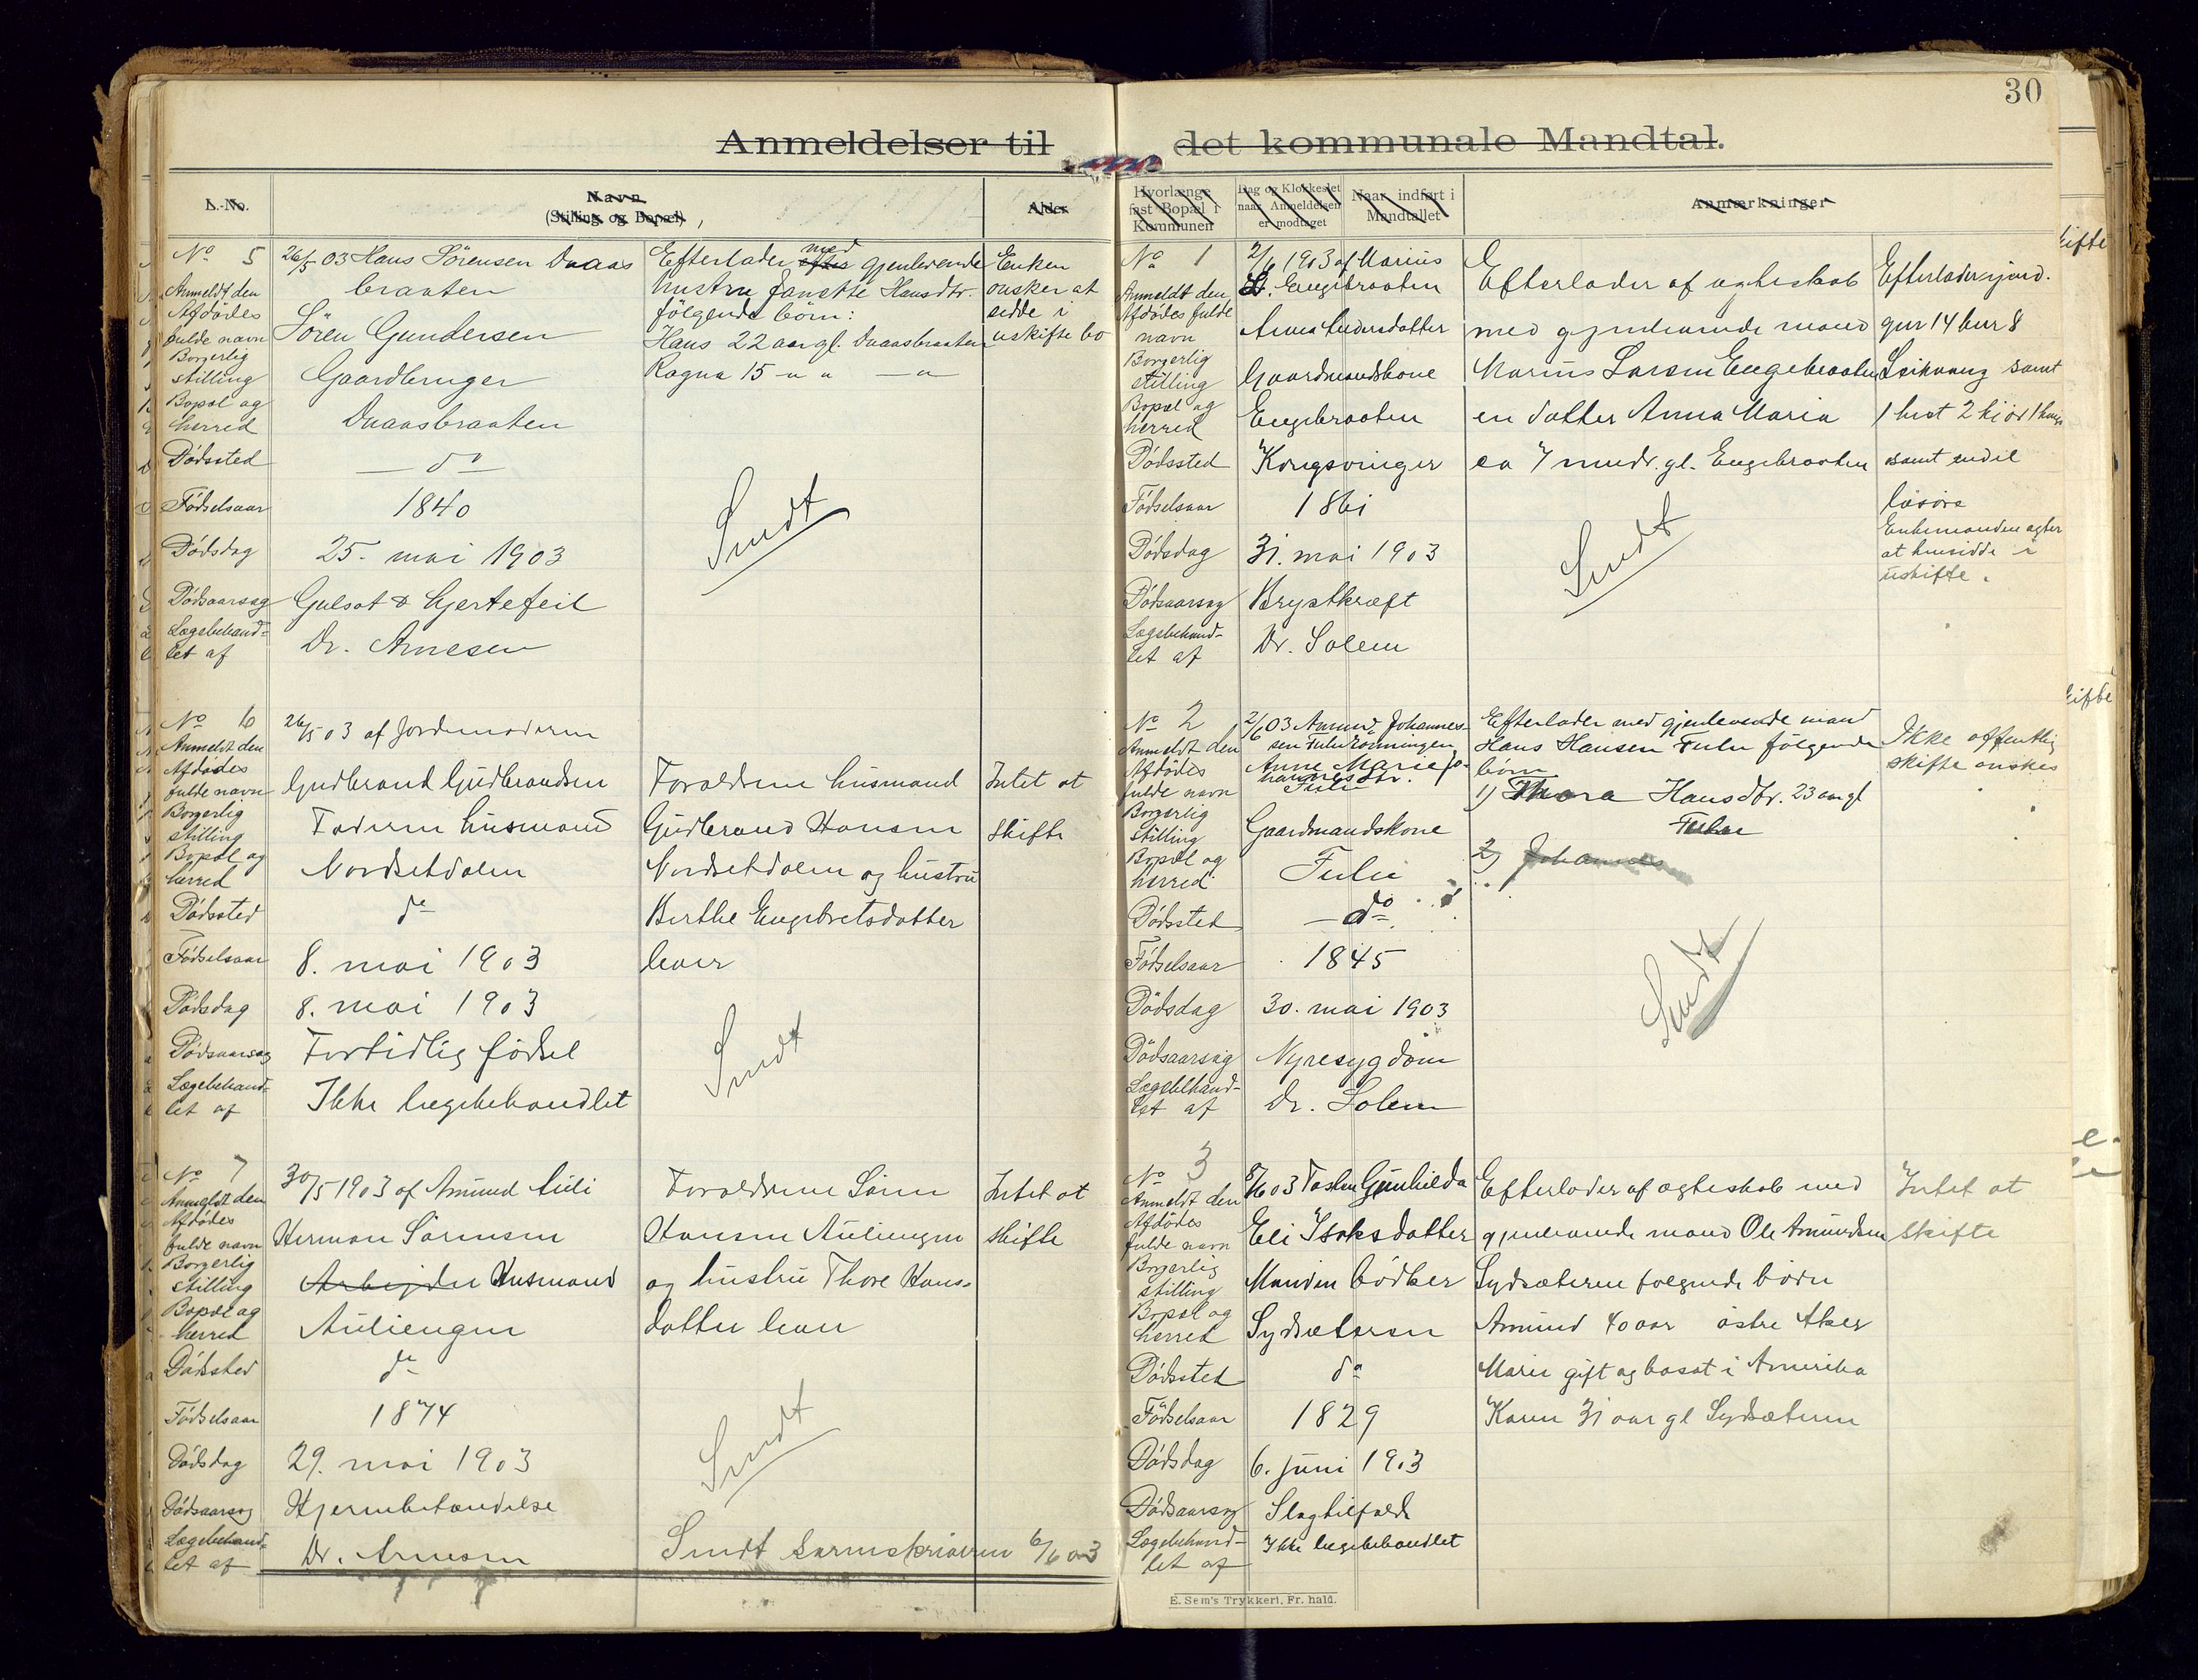 30
Anmeldelser til det kommunale Mandtal.
L.-No.
Navn
(Stilling og Bopæl)
Alder
Hvorlænge fast Bopæl i Kommunen
Dag og Klokkeslet naar Anmeldelsen er modtaget
Naar indført i Mandtallet
Anmærkninger
No 5
Anmeldt den 26/5 03 Hans Sörensen Daaas
braaten
Afdødes fulde navn Sören Gundersen
Borgerlig stilling Gaardbruger
Bopæl og herred Daaasbraaten
Dødssted — do —
Fødselsaar 1840
Dødsdag 25. mai 1903
Dødsaarsag Gulsot & hjertefeil
Lægebehandlet af Dr. Arnesen
Efterlader med gjenlevende
hustru Janette Hansdtr.
følgende børn:
Hans 22 aar gl. Daaasbraaten
Ragna 15 - " " — "
Enken
ønsker at
sidde i
uskifte bo
Sendt
No 6
Anmeldt den 26/5 03 af Jordemoderen
Afdødes fulde navn Gudbrand Gudbrandsen
Borgerlig stilling Faderen husmand
Bopæl og herred Nordsetdalen
Dødssted do
Fødselsaar 8. mai 1903
Dødsdag 8. mai 1903
Dødsaarsag Fortidlig fødsel
Lægebehandlet af Ikke lægebehandlet
Forældrene husmand
Gudbrand Hansen
Nordsetdalen og hustru
Berthe Engebretsdatter
lever
Intet at
skifte
Sendt
No 7
Anmeldt den 30/5 1903 af Amund Auli
Afdødes fulde navn Herman Sörensen
Borgerlig stilling Arbejder Husmand
Bopæl og herred Auliengen
Dødssted do
Fødselsaar 1874
Dødsdag 29. mai 1903
Dødsaarsag Hjernebetændelse
Lægebehandlet af Dr. Arnesen
Forældrene Sören
Hansen Auliengen
og hustru Thore Hans-
datter lever
Intet at
skifte
Sendt
Sendt Sorenskriveren 6/6 03
No 1
Anmeldt den 2/6 1903 af Marius
L. Engebraaten
Afdødes fulde navn Anna Andersdatter
Borgerlig stilling Gaardmandskone
Bopæl og herred Engebraaten
Dødssted Kongsvinger
Fødselsaar 1861
Dødsdag 31. mai 1903
Dødsaarsag Brystkræft
Lægebehandlet af Dr. Solem
Efterlader af egteskab
med gjenlevende mand
Marius Larsen Engebraaten
en datter Anna Maria
ca 7 mndr. gl. Engebraaten
Efterlader ejend.
gnr 14 bnr 8
samt
1 hest 2 kjör
samt endel
løsøre
Enkemanden agter
at hensidde i
uskifte.
Sendt
No 2
Anmeldt den 2/6 03 Amund Johannes-
sen Fulurönningen
Afdødes fulde navn Anne Marie Jo-
hannesdtr.
Fulu
Borgerlig stilling Gaardmandskone
Bopæl og herred Fulu
Dødssted — do
Fødselsaar 1845
Dødsdag 30. mai 1903
Dødsaarsag Nyresygdom
Lægebehandlet af Dr. Solem
Efterlader med gjenlevende mand
Hans Hansen Fulu følgende
børn
1) Thora Hansdtr. 23 aar gl
Fulu
2) Johannes
Ikke offentlig
skifte ønskes
Sendt
No 3
Anmeldt den 8/6 03 Gunhilda
Afdødes fulde navn Eli Isaksdatter
Borgerlig stilling Manden bødker
Bopæl og herred Sydsæteren
Dødssted do
Fødselsaar 1829
Dødsdag 6. juni 1903
Dødsaarsag Slagtilfælde
Lægebehandlet af Ikke lægebehandlet
Efterlader af ægteskab med
gjenlevende mand Ole Amundsen
Sydsæteren følgende børn
Amund 40 aar østre Aker
Maria gift og bosat i Amerika
Karen 31 aar gl Sydsæteren
Intet at
skifte
E. Sem's Trykkeri, Fr. hald.